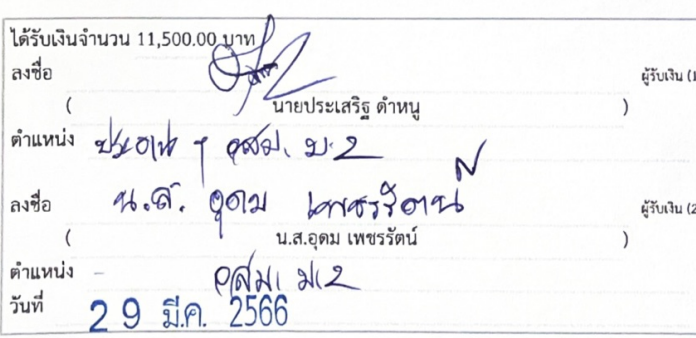 ได้รับเงินจำนวน 11,500.00 บาท
ลงชื่อ ผู้รับเงิน (
( นายประเสริฐ ดำหนู )
ตำแหน่ง ประธาน ฯ อสม. ม.2
ลงชื่อ น.ส. อุดม เพชรรัตน์ ผู้รับเงิน (2
( น.ส.อุดม เพชรรัตน์ )
ตำแหน่ง - อสม. ม.2
วันที่ 29 มี.ค. 2566